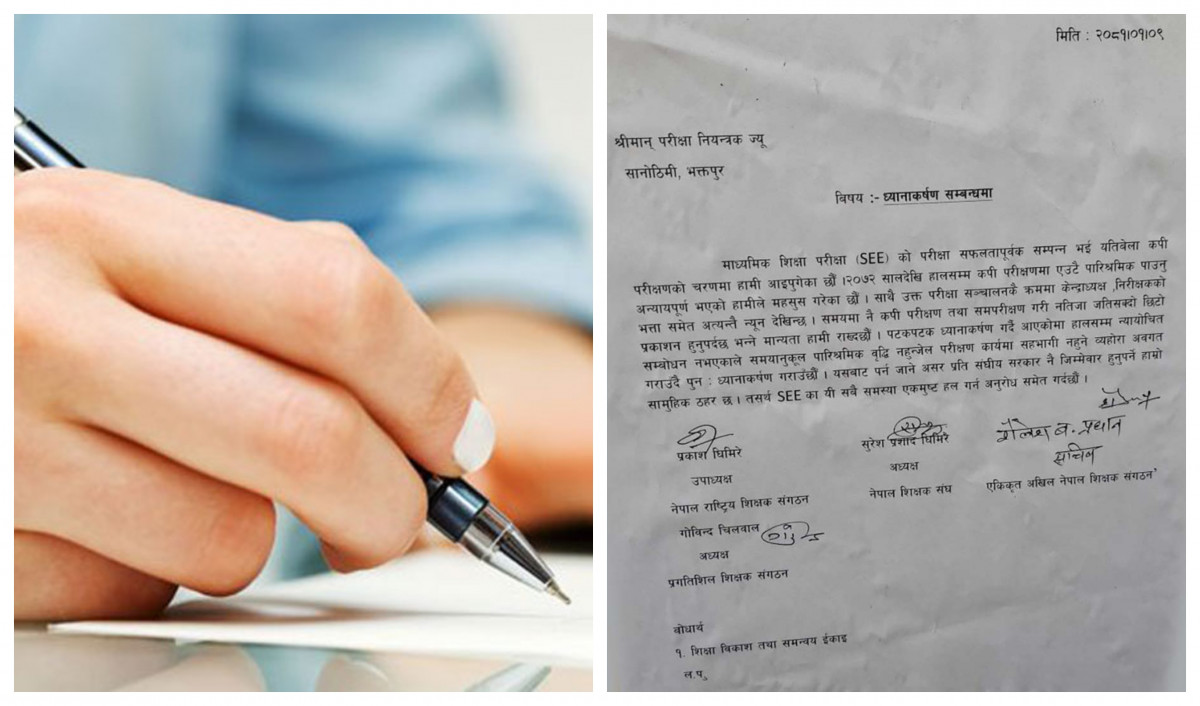 मिति : २०८१।०१।०९
श्रीमान् परीक्षा नियन्त्रक ज्यू
सानोठिमी, भक्तपुर
विषय :- ध्यानाकर्षण सम्बन्धमा
माध्यमिक शिक्षा परीक्षा (SEE) को परीक्षा सफलतापूर्वक सम्पन्न भई यतिबेला कपी
परीक्षणको चरणमा हामी आइपुगेका छौं ।२०७२ सालदेखि हालसम्म कपी परीक्षणमा एउटै पारिश्रमिक पाउनु
अन्यायपूर्ण भएको हामीले महसुस गरेका छौं । साथै उक्त परीक्षा सञ्चालनकै क्रममा केन्द्राध्यक्ष ,निरीक्षकको
भत्ता समेत अत्यन्तै न्यून देखिन्छ । समयमा नै कपी परीक्षण तथा सम्परीक्षण गरी नतिजा जतिसक्दो छिटो
प्रकाशन हुनुपर्दछ भन्ने मान्यता हामी राख्दछौं । पटकपटक ध्यानाकर्षण गर्दै आएकोमा हालसम्म न्यायोचित
सम्बोधन नभएकाले समयानुकूल पारिश्रमिक वृद्धि नहुन्जेल परीक्षण कार्यमा सहभागी नहुने व्यहोरा अवगत
गराउँदै पुन : ध्यानाकर्षण गराउँछौं । यसबाट पर्न जाने असर प्रति संघीय सरकार नै जिम्मेवार हुनुपर्ने हाम्रो
सामुहिक ठहर छ । तसर्थ SEE का यी सबै समस्या एकमुष्ट हल गर्न अनुरोध समेत गर्दछौं ।
प्रकाश घिमिरे सुरेश प्रशाद घिमिरे शैलेश ब. प्रधान
उपाध्यक्ष अध्यक्ष सचिव
नेपाल राष्ट्रिय शिक्षक संगठन नेपाल शिक्षक संघ एकिकृत अखिल नेपाल शिक्षक संगठन
गोविन्द घिलवाल
अध्यक्ष
प्रगतिशिल शिक्षक संगठन
बोधार्थ
१. शिक्षा विकाश तथा समन्वय ईकाइ
ल.पु